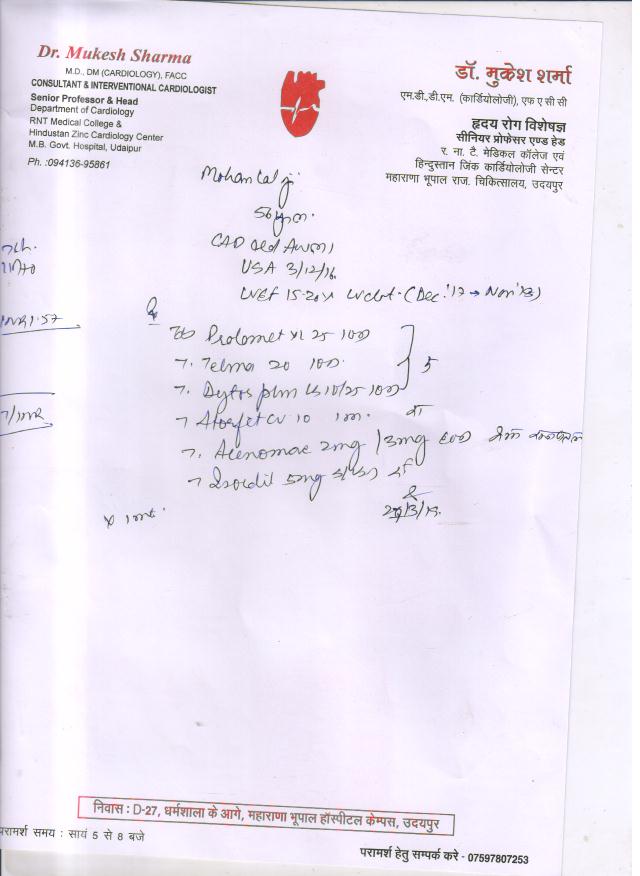 Dr. Mukesh Sharma
M.D., DM (CARDIOLOGY), FACC
CONSULTANT & INTERVENTIONAL CARDIOLOGIST
Senior Professor & Head
Department of Cardiology
RNT Medical College &
Hindustan Zinc Cardiology Center
M.B. Govt. Hospital, Udaipur
Ph. :094136-95861
डॉ. मुकेश शर्मा
एम.डी.,डी.एम. (कार्डियोलोजी), एफ ए सी सी
हृदय रोग विशेषज्ञ
सीनियर प्रोफेसर एण्ड हेड
र. ना. टै. मेडिकल कॉलेज एवं
हिन्दुस्तान जिंक कार्डियोलोजी सेन्टर
महाराणा भूपाल राज. चिकित्सालय, उदयपुर
Mohan Lal ji
56
CAD old AWMI
USA 3/12/16
LVEF 15-20% LV clot (Dec.'17 → Nov'18)
INR 1.57
Prolomet XL 25 1OD
T. Telma 20 1OD
5
T. Dytor plus LS 10/25 1OD
T CV 10
T. Acenomac 2mg / 3mg
T Isordil 5mg
x 1
निवास : D-27, धर्मशाला के आगे, महाराणा भूपाल हॉस्पीटल केम्पस, उदयपुर
परामर्श समय : सायं 5 से 8 बजे
परामर्श हेतु सम्पर्क करे - 07597807253